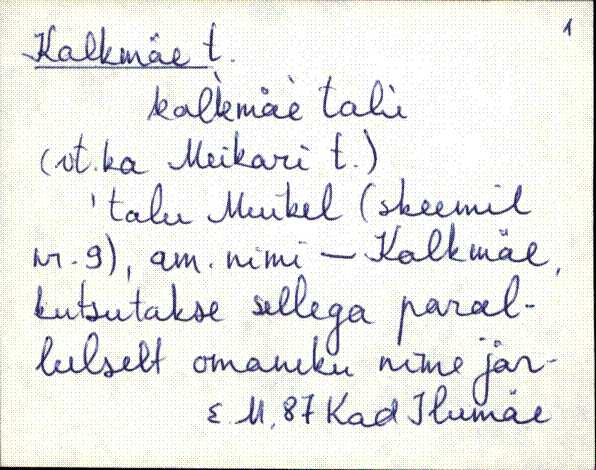 1
Kalkmäe t.
kal̀kmäè talù
(vt. ka Meikari t.)
'talu Muikel (skeemil
nr. 9), am. nimi — Kalkmäe,
kutsutakse sellega paral-
leelselt omaniku nime jär-
E. M, 87 Kad Ilumäe